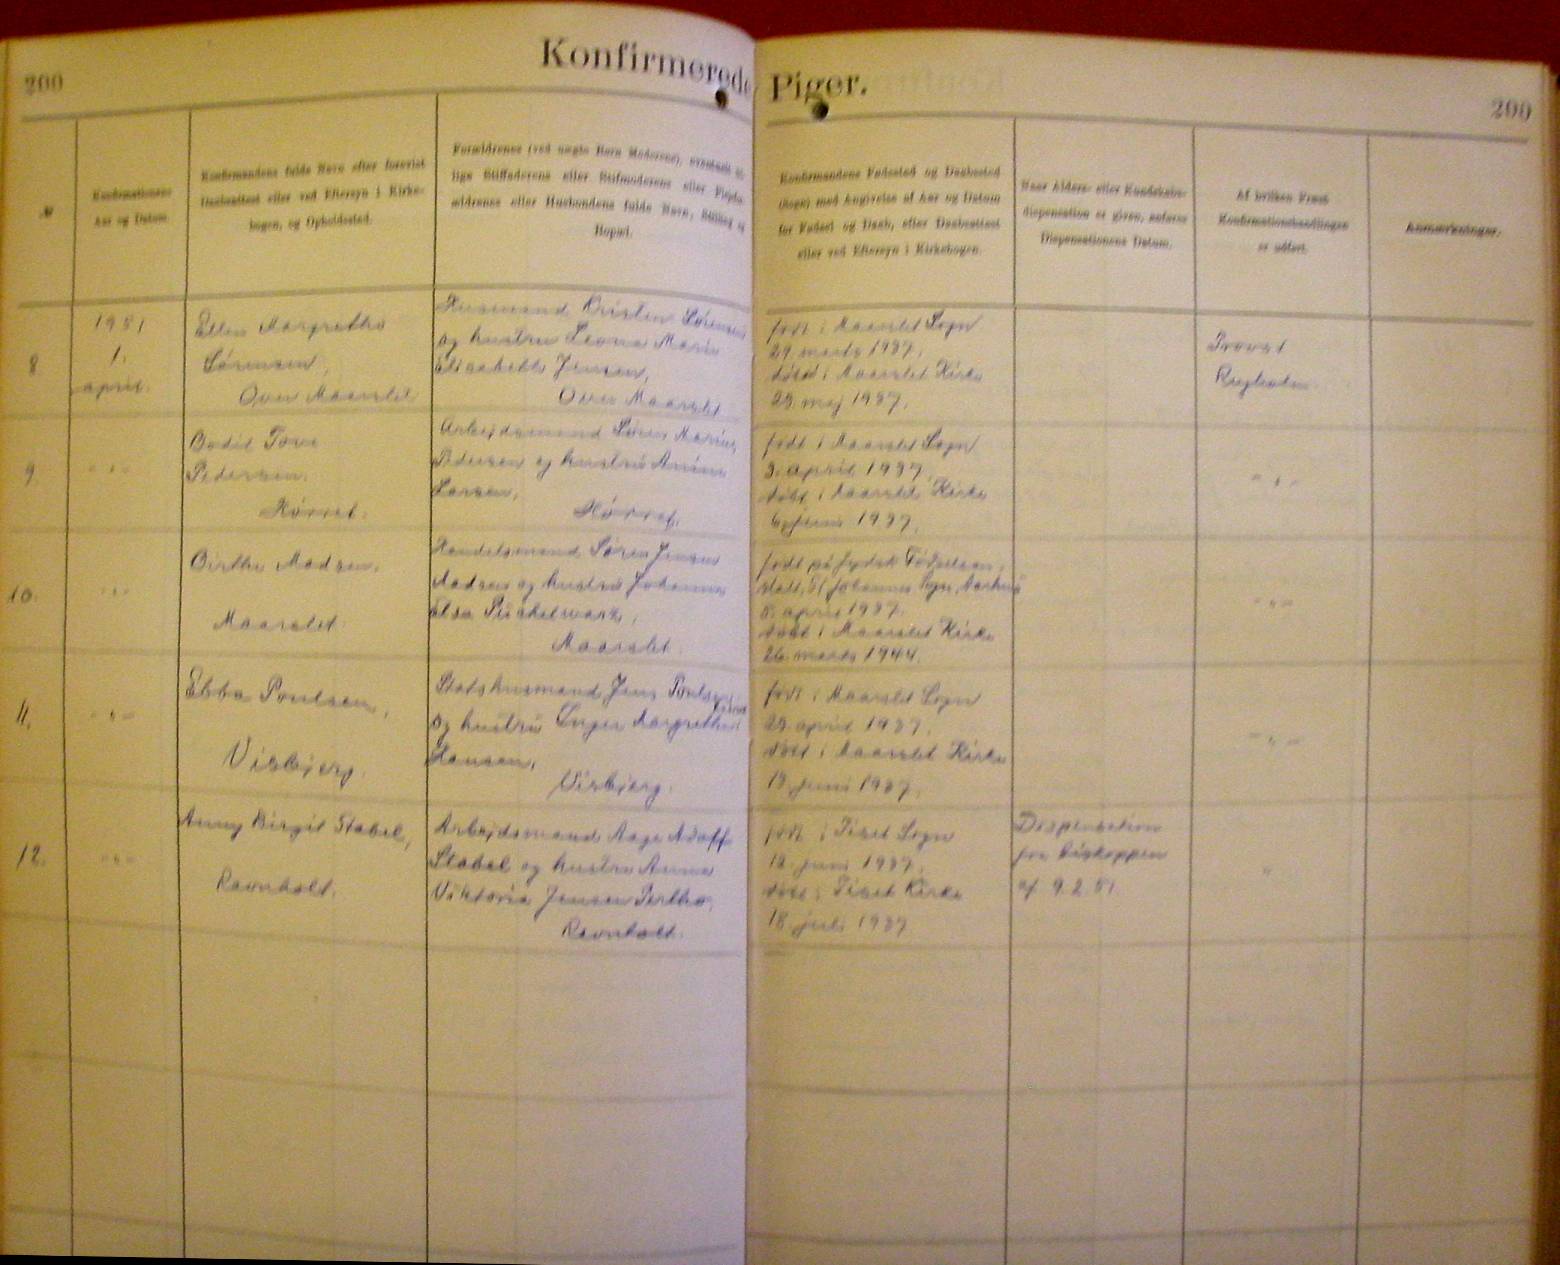 200
Konfirmerede Piger.
200
Konfirmationens
Aar og Datum.
Konfirmandens fulde Navn efter forevist
Daabsattest eller ved Eftersyn i Kirke-
bogen, og Opholdssted.
Forældrenes (ved uægte Børn Moderens), eventuelt
lige Stiffaderens eller Stifmoderens eller Pleje-
ældrenes eller Husbondens fulde Navn, Stilling og
Bopæl.
Konfirmandens Fødested og Daabssted
(Sogn) med Angivelse af Aar og Datum
for Fødsel og Daab, efter Daabsattest
eller ved Eftersyn i Kirkebogen.
Naar Alders- eller Kundskabs-
dispensation er given, anføres
Dispensationens Datum.
Af hvilken Præst
Konfirmationshandlingen
er udført.
Anmærkninger.
8
1951
1.
april.
Ellen Margrethe
Sørensen,
Over Maarslet
Husmand Kristen Sørensen
og hustru Leona Marie
Elisabeth Jensen,
Over Maarslet
født i Maarslet Sogn
29. marts 1937.
døbt i Maarslet Kirke
29. maj 1937.
Provst
9
- " -
Bodil Tove
Pedersen.
Hørret.
Arbejdsmand Søren Marius
Pedersen og hustru
Larsen,
Hørret.
født i Maarslet Sogn
3. april 1937.
døbt i Maarslet Kirke
6. juni 1937.
- " -
10.
- " -
Birthe Madsen.
Maarslet.
Handelsmand Søren Jensen
Madsen og hustru Johanne
Elsa
Maarslet.
født på Jydsk Fødselsan-
stalt, St Johannes Sogn, Aarhus
5. april 1937.
døbt i Maarslet Kirke
26. marts 1944.
- " -
11.
- " -
Ebba Poulsen,
Visbjerg.
Statshusmand Jens Poulsen
og hustru Inger Margrethe
Hansen,
Visbjerg.
født i Maarslet Sogn
29. april 1937.
døbt i Maarslet Kirke
13. juni 1937.
- " -
12.
- " -
Anny Birgit Stabel,
Ravnholt.
Arbejdsmand Aage
Stabel og hustru Anna
Viktoria Jensen
Ravnholt.
født i Tiset Sogn
12. juni 1937.
døbt i Tiset Kirke
18. juli 1937.
Dispensation
fra biskoppen
af 9.2.51.
"